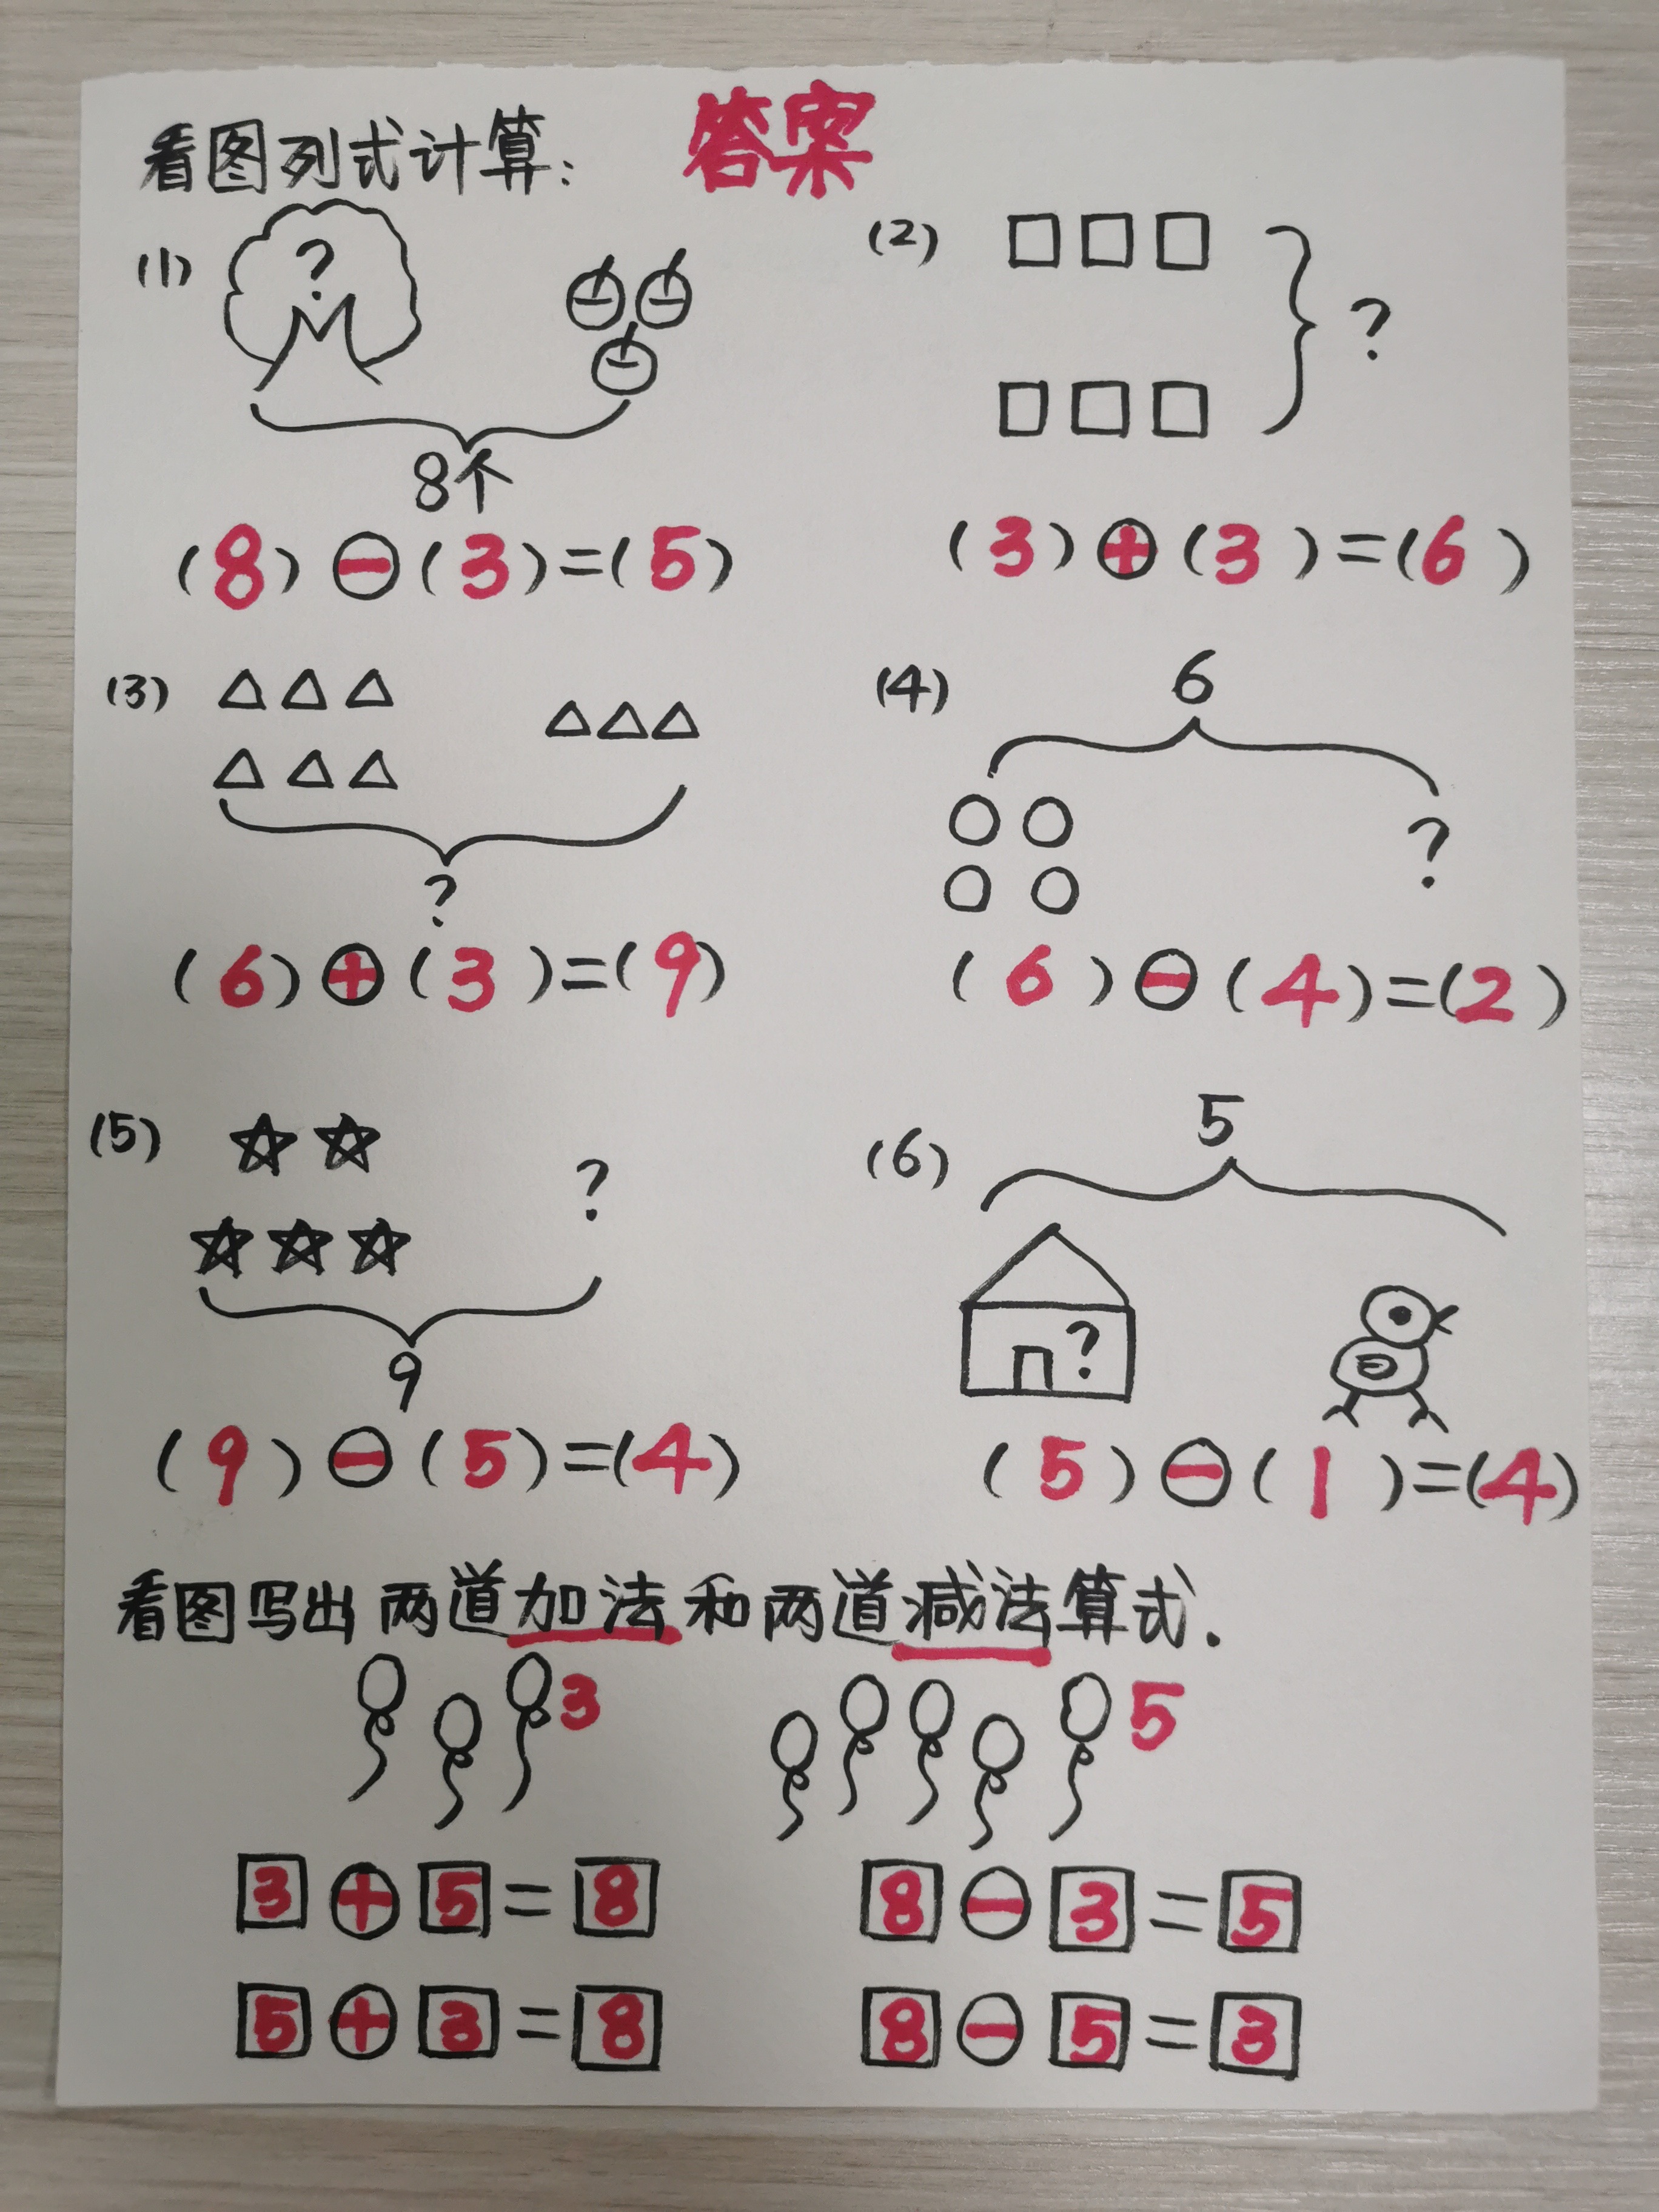 看图列式计算: 答案
(1) ?
8个
(8)⊖(3)=(5)
(2) ?
(3)⊕(3)=(6)
(3)
?
(6)⊕(3)=(9)
(4) 6
?
(6)⊖(4)=(2)
(5) ?
9
(9)⊖(5)=(4)
(6) 5
?
(5)⊖(1)=(4)
看图写出两道加法和两道减法算式.
3 5
3⊕5=8 8⊖3=5
5⊕3=8 8⊖5=3